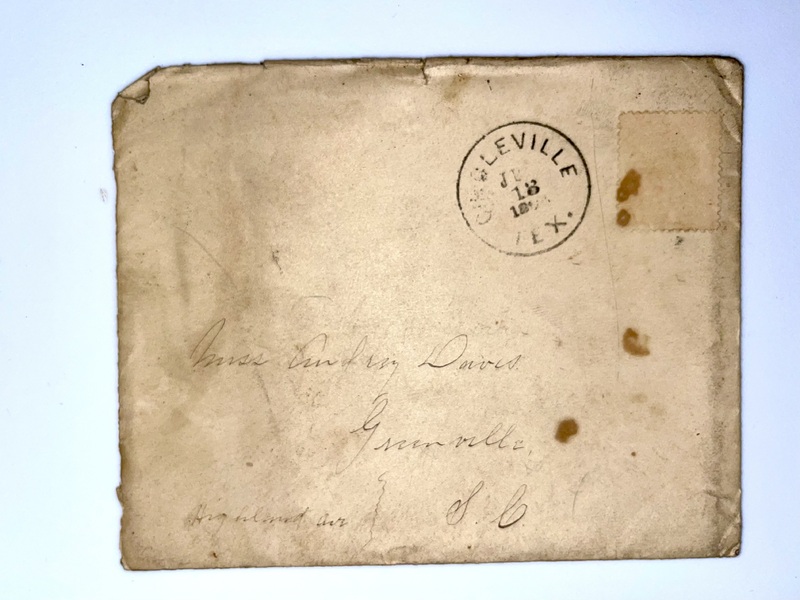 JU
18
TEX.
Miss Audrey Davis
Greenville,
Highland ave } S. C